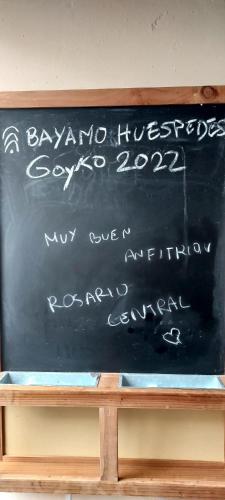 BAYAMO HUESPEDES
Goyko 2022
MUY BUEN
ANFITRION
ROSARIO
CENTRAL